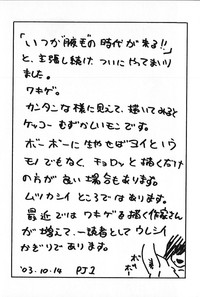 「いつか腋毛の時代が来る!!」
と、主張し続け、ついにやってまいり
ました。
ワキゲ。
カンタンな様に見えて、描いてみると
ケッコームずかしいモンです。
ボーボーにはやせばヨイというウ
モノでもなく、チョロッと描くだけ
の方が良い場合もあります。
ムツカシイところではあります。
最近ではワキゲを描く作家さん
が増えて、一読者としてウレシイ
かぎりであります。
'03.10.14 PJ1
ボボー